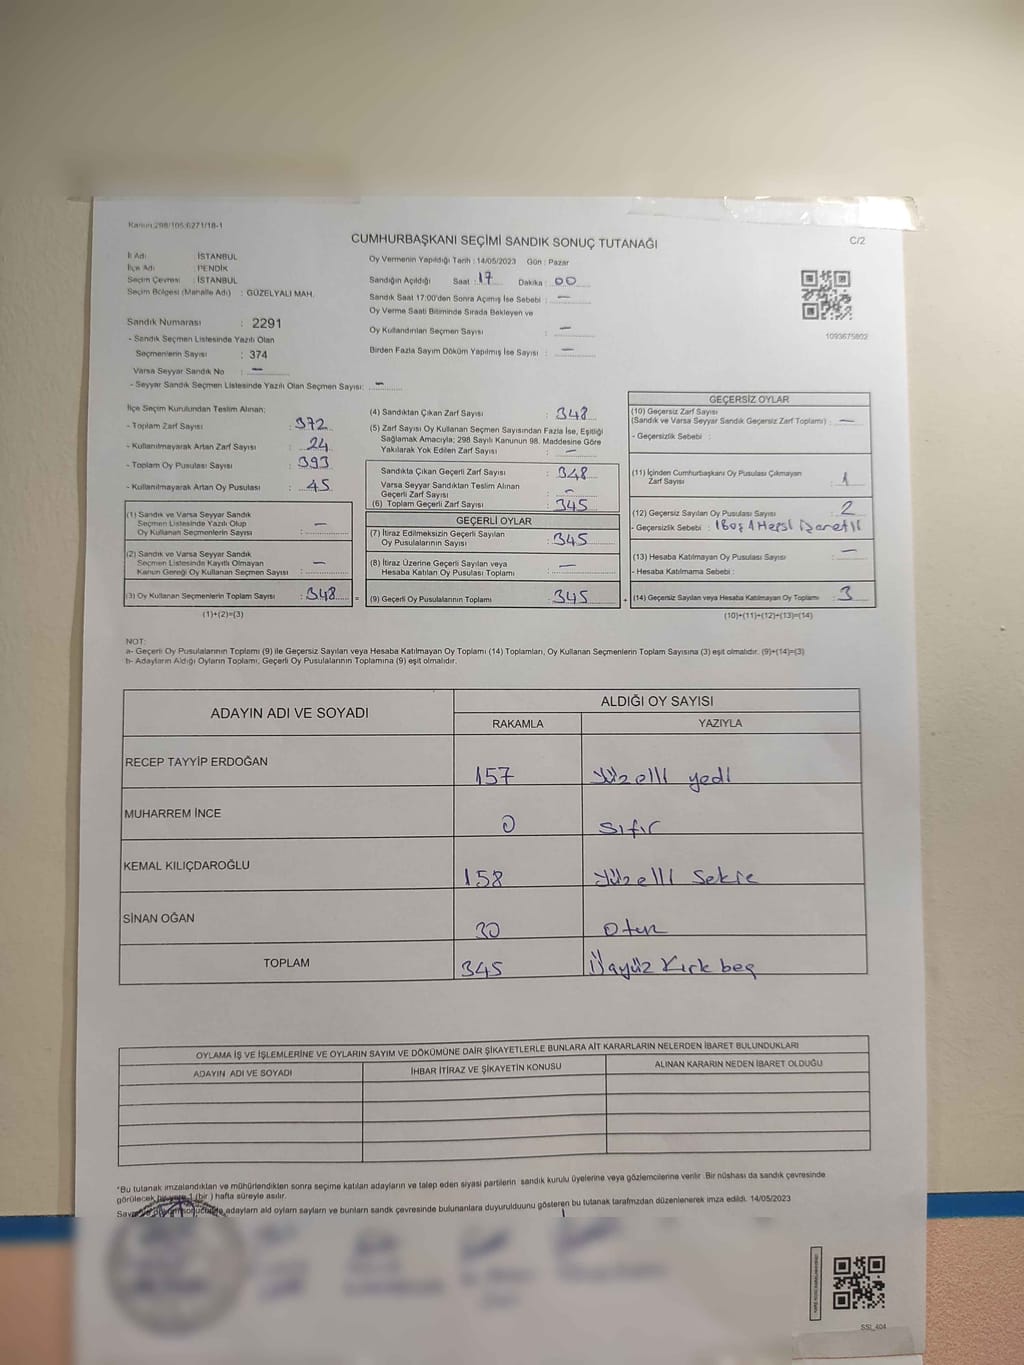 Kanun:298/105:6271/18-1
CUMHURBAŞKANI SEÇİMİ SANDIK SONUÇ TUTANAĞI
C/2
İl Adı : İSTANBUL
İlçe Adı : PENDİK
Seçim Çevresi : İSTANBUL
Seçim Bölgesi (Mahalle Adı) : GÜZELYALI MAH.
Sandık Numarası : 2291
- Sandık Seçmen Listesinde Yazılı Olan
Seçmenlerin Sayısı : 374
Varsa Seyyar Sandık No : —
- Seyyar Sandık Seçmen Listesinde Yazılı Olan Seçmen Sayısı: —
Oy Vermenin Yapıldığı Tarih : 14/05/2023 Gün : Pazar
Sandığın Açıldığı Saat : 17 Dakika : 00
Sandık Saat 17:00'den Sonra Açımış İse Sebebi : —
Oy Verme Saati Bitiminde Sırada Bekleyen ve
Oy Kullandırılan Seçmen Sayısı : —
Birden Fazla Sayım Döküm Yapılmış İse Sayısı : —
1093675802
İlçe Seçim Kurulundan Teslim Alınan;
- Toplam Zarf Sayısı : 372
- Kullanılmayarak Artan Zarf Sayısı : 24
- Toplam Oy Pusulası Sayısı : 393
- Kullanılmayarak Artan Oy Pusulası : 45
(1) Sandık ve Varsa Seyyar Sandık
Seçmen Listesinde Yazılı Olup
Oy Kullanan Seçmenlerin Sayısı : —
(2) Sandık ve Varsa Seyyar Sandık
Seçmen Listesinde Kayıtlı Olmayan
Kanun Gereği Oy Kullanan Seçmen Sayısı : —
(3) Oy Kullanan Seçmenlerin Toplam Sayısı : 348
(1)+(2)=(3)
(4) Sandıktan Çıkan Zarf Sayısı : 348
(5) Zarf Sayısı Oy Kullanan Seçmen Sayısından Fazla İse, Eşitliği
Sağlamak Amacıyla; 298 Sayılı Kanunun 98. Maddesine Göre
Yakılarak Yok Edilen Zarf Sayısı : —
Sandıkta Çıkan Geçerli Zarf Sayısı : 348
Varsa Seyyar Sandıktan Teslim Alınan
Geçerli Zarf Sayısı : —
(6) Toplam Geçerli Zarf Sayısı : 345
GEÇERLİ OYLAR
(7) İtiraz Edilmeksizin Geçerli Sayılan
Oy Pusulalarının Sayısı : 345
(8) İtiraz Üzerine Geçerli Sayılan veya
Hesaba Katılan Oy Pusulası Toplamı : —
= (9) Geçerli Oy Pusulalarının Toplamı : 345
GEÇERSİZ OYLAR
(10) Geçersiz Zarf Sayısı
(Sandık ve Varsa Seyyar Sandık Geçersiz Zarf Toplamı) : —
- Geçersizlik Sebebi :
(11) İçinden Cumhurbaşkanı Oy Pusulası Çıkmayan
Zarf Sayısı : 1
(12) Geçersiz Sayılan Oy Pusulası Sayısı : 2
- Geçersizlik Sebebi : 1Boş 1
(13) Hesaba Katılmayan Oy Pusulası Sayısı : —
- Hesaba Katılmama Sebebi :
+ (14) Geçersiz Sayılan veya Hesaba Katılmayan Oy Toplamı : 3
(10)+(11)+(12)+(13)=(14)
NOT:
a- Geçerli Oy Pusulalarının Toplamı (9) ile Geçersiz Sayılan veya Hesaba Katılmayan Oy Toplamı (14) Toplamları, Oy Kullanan Seçmenlerin Toplam Sayısına (3) eşit olmalıdır. (9)+(14)=(3)
b- Adayların Aldığı Oyların Toplamı, Geçerli Oy Pusulalarının Toplamına (9) eşit olmalıdır.
ADAYIN ADI VE SOYADI
ALDIĞI OY SAYISI
RAKAMLA YAZIYLA
RECEP TAYYİP ERDOĞAN 157 Yüzelli yedi
MUHARREM İNCE 0 sıfır
KEMAL KILIÇDAROĞLU 158 Yüzelli Sekiz
SİNAN OĞAN 30 Otuz
TOPLAM 345 Üçyüz Kırk beş
OYLAMA İŞ VE İŞLEMLERİNE VE OYLARIN SAYIM VE DÖKÜMÜNE DAİR ŞİKAYETLERLE BUNLARA AİT KARARLARIN NELERDEN İBARET BULUNDUKLARI
ADAYIN ADI VE SOYADI İHBAR İTİRAZ VE ŞİKAYETİN KONUSU ALINAN KARARIN NEDEN İBARET OLDUĞU
*Bu tutanak imzalandıktan ve mühürlendikten sonra seçime katılan adayların ve talep eden siyasi partilerin sandık kurulu üyelerine veya gözlemcilerine verilir. Bir nüshası da sandık çevresinde
görülecek bir yere 1 (bir ) hafta süreyle asılır.
adayların aldı oyların sayların ve bunların sandık çevresinde bulunanlara duyurulduunu gösteren bu tutanak tarafmzdan düzenlenerek imza edildi. 14/05/2023
SSİ_404